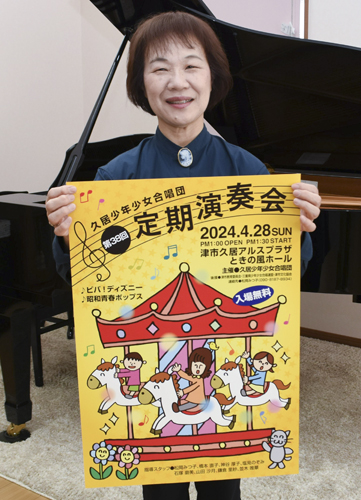 久居少年少女合唱団
第38回
定期演奏会
2024.4.28 SUN
PM1:00 OPEN PM1:30 START
津市久居アルスプラザ
ときの風ホール
主催●久居少年少女合唱団
♪ビバ!ディズニー
♪昭和青春ポップス
入場無料